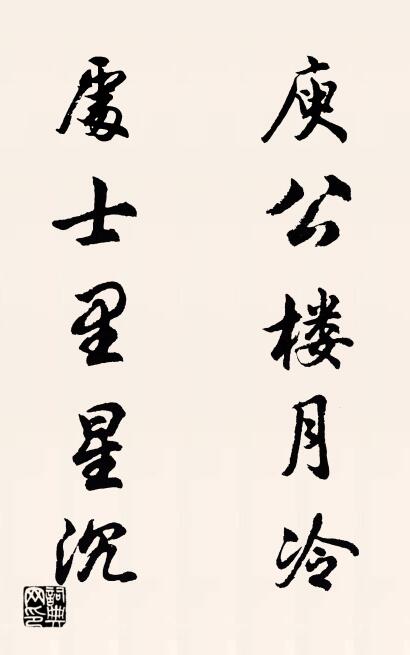 庾公楼月冷
處士里星沉
詞典网印